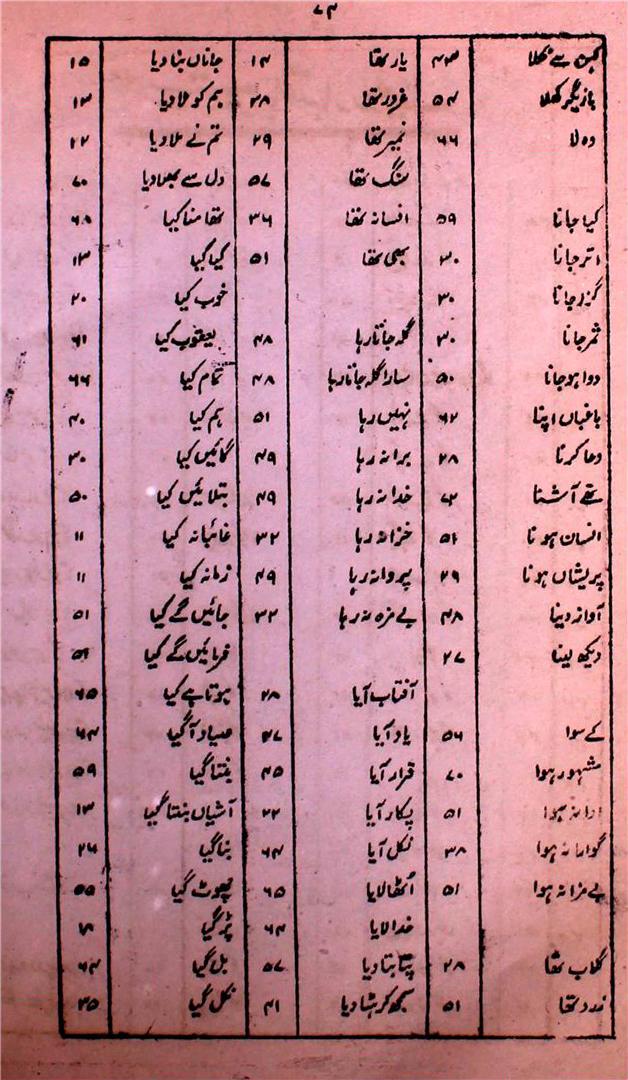 ۷۴
کہن سے نکلا ۴۳ یار تھا ۱۴ جاناں بنا دیا ۱۵
بازیگر کھلا ۵۴ غرور تھا ۳۸ ہم کو ملا دیا ۱۳
وہ لا ۶۶ نمبر تھا ۲۹ تم نے ملا دیا ۲۲
سنگ تھا ۵۷ دل سے بھلا دیا ۷۰
کیا جانا ۵۹ افسانہ تھا ۳۶ تھا منا کیا ۶۸
اتر جانا ۳۰ بھی تھا ۵۱ کیا گیا ۱۳
گزر جانا ۳۰ خوب کیا ۲۰
ثمر جانا ۳۰ گلہ جاتا رہا ۴۸ یعقوب کیا ۶۱
دوا ہو جانا ۵۰ سارا گلہ جاتا رہا ۴۸ تمام کیا ۶۶
باغباں اپنا ۶۲ نہیں رہا ۵۱ ہم کیا ۴۰
دعا کرنا ۲۸ برا نہ رہا ۴۹ گائیں کیا ۳۰
تھے آشنا خدا نہ رہا ۴۹ بتلائیں کیا ۵۰
انسان ہونا ۵۱ خزانہ رہا ۳۲ غائبانہ کیا ۱۱
پریشاں ہونا ۲۹ پروانہ رہا ۴۹ زمانہ کیا ۱۱
آواز دینا ۴۸ بے مزہ نہ رہا ۳۲ جائیں گے کیا ۵۱
دیکھ لینا ۲۷ فرمائیں گے کیا ۵۱
آفتاب آیا ۲۸ ہوتا ہے کیا ۶۵
کے سوا ۵۶ یاد آیا ۲۷ صیاد آ گیا ۶۴
مشہور ہوا ۷۰ قرار آیا ۴۵ بنتا گیا ۵۹
ادا نہ ہوا ۵۱ پکار آیا ۲۲ آشیاں بنتا گیا ۱۳
گوارا نہ ہوا ۳۸ نکل آیا ۶۴ بنا گیا ۲۶
بے مزا نہ ہوا ۵۱ اُٹھا لایا ۶۵ پھوٹ گیا ۵۵
خدا لایا ۶۴ پڑ گیا
گلاب تھا ۲۸ پتا بتا دیا ۵۷ بل گیا ۶۴
زرد تھا ۵۱ سمجھ کر ہنسا دیا ۴۱ نکل گیا ۳۵